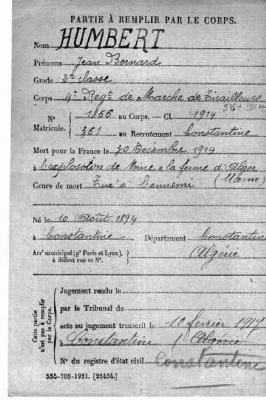 PARTIE À REMPLIR PAR LE CORPS.
Nom HUMBERT
Prénoms Jean Bernard
Grade 2e classe
Corps 4e Regt de Marche de Tirailleurs
N° 1856 au Corps. — Cl. 1914
Matricule. 361 au Recrutement Constantine
Mort pour la France le 30 Décembre 1914
à l'explosion de Mine a la ferme d'Alger
(Marne)
Genre de mort Tué à l'ennemi
Né le 10 Août 1894
à Constantine Département Constantine
Arrt municipal (pr Paris et Lyon), à défaut rue et N°. (Algérie)
Cette partie n'est pas à remplir par le Corps.
Jugement rendu le
par le Tribunal de
acte ou jugement transcrit le 10 février 1917
à Constantine (Algérie)
N° du registre d'état civil Constantine
535-708-1921. [26434.]